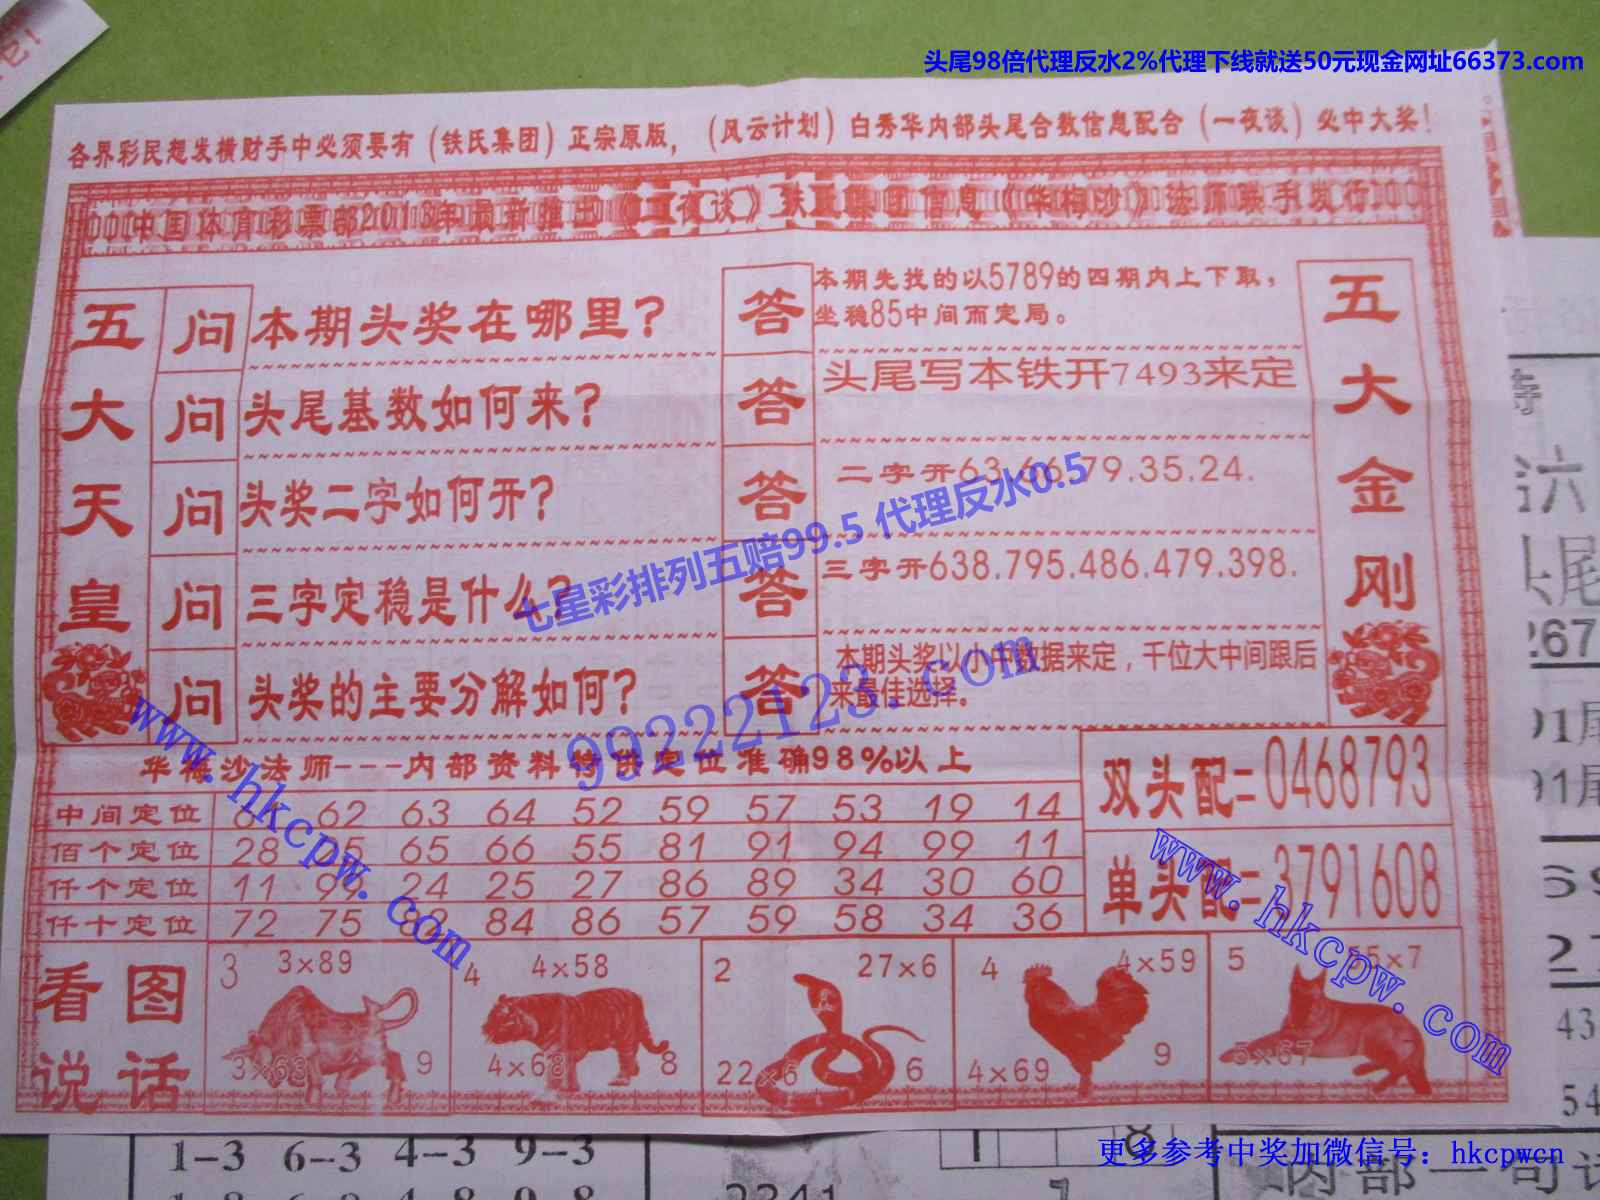 头尾98倍代理反水2%代理下线就送50元现金网址66373.com
各界彩民想发横财手中必须要有（铁氏集团）正宗原版，（风云计划）白秀华内部头尾合数信息配合（一夜谈）必中大奖！
中国体育彩票部2013年最新推出《一夜谈》铁氏集团信息《华梅沙》法师联手发行
五大天皇
问 本期头奖在哪里？
答 本期先找的以5789的四期内上下取，
坐稳85中间而定局。
问 头尾基数如何来？
答 头尾写本铁开7493来定
问 头奖二字如何开？
答 二字开63.66.79.35.24.
问 三字定稳是什么？
答 三字开638.795.486.479.398.
问 头奖的主要分解如何？
答 本期头奖以小中数据来定，千位大中间跟后
来最佳选择。
五大金刚
七星彩排列五赔99.5 代理反水0.5
99222123.com
华梅沙法师---内部资料特供定位准确98%以上
中间定位 62 63 64 52 59 57 53 19 14
佰个定位 28 65 66 55 81 91 94 99 11
仟个定位 11 99 24 25 27 86 89 34 30 60
仟十定位 72 75 82 84 86 57 59 58 34 36
双头配=0468793
单头配=3791608
www.hkcpw.com
www.hkcpw.com
看图说话
3 3×89
3×63 9
4 4×58
4×68 8
2 27×6
22×6 6
4 4×59
4×69 9
5 55×7
5×67
1-3 6-3 4-3 9-3
2341
1 8
更多参考中奖加微信号：hkcpwcn
内部一句